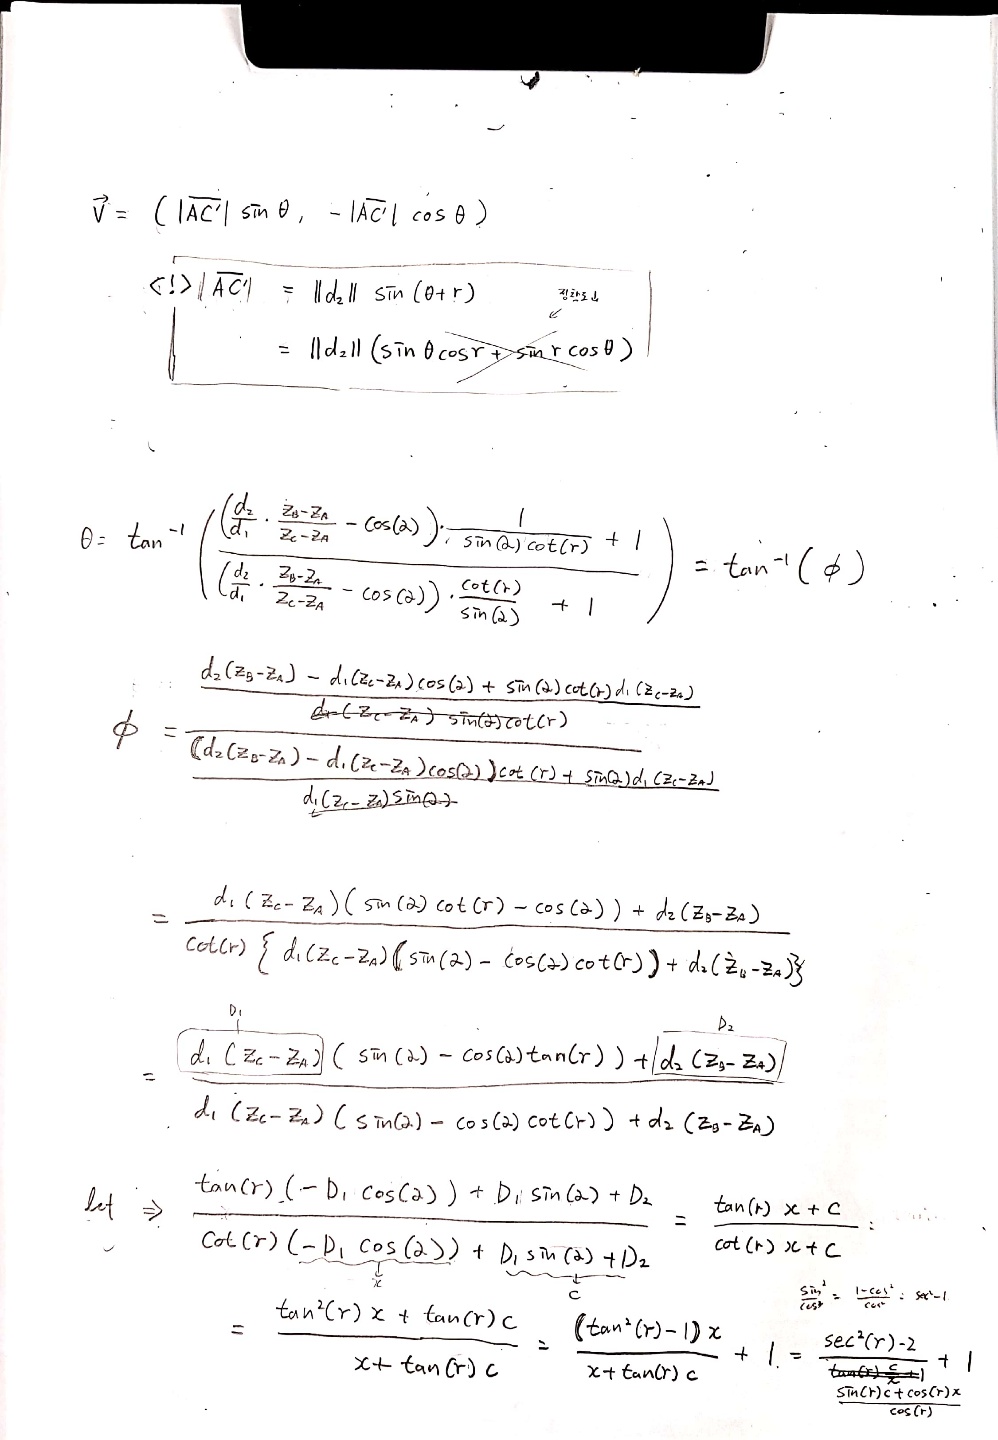 v⃗ = ( |A̅C̅'| sin θ , - |A̅C̅'| cos θ )
<!> |A̅C̅'| = ||d₂|| sin (θ+r)
= ||d₂|| (sin θ cos r + sin r cos θ )
θ = tan⁻¹ ( ( (d₂/d₁ · (Z_B-Z_A)/(Z_C-Z_A) - cos(2)) · 1/(sin(2) cot(r)) + 1 ) / ( (d₂/d₁ · (Z_B-Z_A)/(Z_C-Z_A) - cos(2)) · cot(r)/sin(2) + 1 ) ) = tan⁻¹ ( ϕ )
ϕ = ( ( d₂(Z_B-Z_A) - d₁(Z_C-Z_A)cos(2) + sin(2)cot(r)d₁(Z_C-Z_A) ) / ( d₁(Z_C-Z_A) sin(2)cot(r) ) ) / ( ( (d₂(Z_B-Z_A) - d₁(Z_C-Z_A)cos(2))cot(r) + sin(2)d₁(Z_C-Z_A) ) / ( d₁(Z_C-Z_A)sin(2) ) )
= ( d₁(Z_C-Z_A)( sin(2)cot(r) - cos(2)) + d₂(Z_B-Z_A) ) / ( cot(r) { d₁(Z_C-Z_A)(sin(2) - cos(2)cot(r)) + d₂(Z_B-Z_A)} )
D₁ D₂
= ( d₁(Z_C-Z_A)( sin(2) - cos(2)tan(r)) + d₂(Z_B-Z_A) ) / ( d₁(Z_C-Z_A)( sin(2) - cos(2)cot(r)) + d₂(Z_B-Z_A) )
let ⇒ ( tan(r)(-D₁ cos(2)) + D₁ sin(2) + D₂ ) / ( cot(r)(-D₁ cos(2)) + D₁ sin(2) + D₂ ) = ( tan(r) x + c ) / ( cot(r) x + c )
x c
sin²/cos² = (1-cos²)/cos² = sec²-1
= ( tan²(r) x + tan(r) c ) / ( x + tan(r) c ) = ( (tan²(r)-1) x ) / ( x + tan(r) c ) + 1 = ( sec²(r)-2 ) / ( ( sin(r)c + cos(r)x ) / cos(r) ) + 1